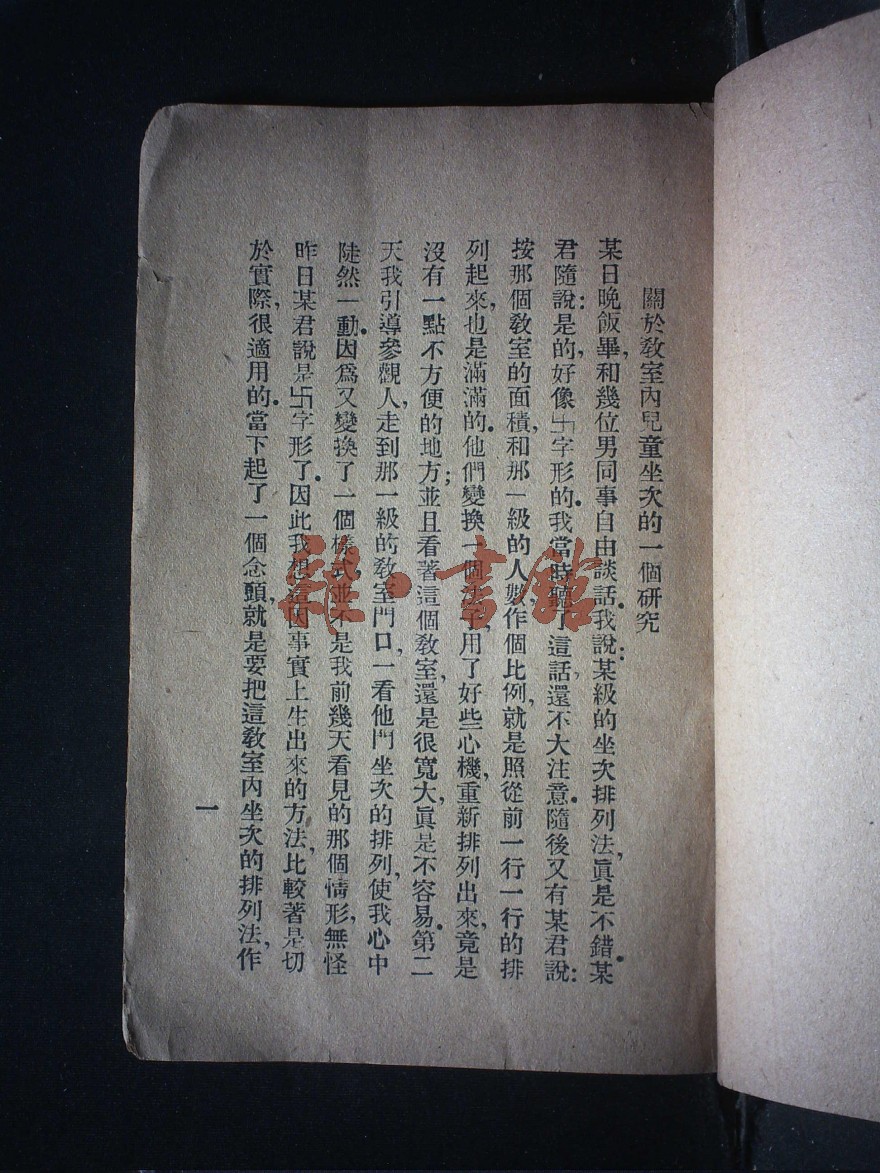 關於敎室內兒童坐次的一個研究
某日晚飯畢,和幾位男同事自由談話。我說:某級的坐次排列法,眞是不錯。某
君隨說:是的,好像卐字形的。我當時聽了這話,還不大注意。隨後又有某君說:
按那個敎室的面積,和那一級的人數作個比例,就是照從前一行一行的排
列起來,也是滿滿的。他們變換一個法子,用了好些心機,重新排列出來,竟是
沒有一點不方便的地方;並且看著這個敎室,還是很寬大,眞是不容易。第二
天我引導參觀人,走到那一級的敎室門口,一看他門坐次的排列,使我心中
陡然一動。因爲又變換了一個樣式,並不是我前幾天看見的那個情形,無怪
昨日某君說是卐字形了。因此我想這因事實上生出來的方法,比較著是切
於實際,很適用的。當下起了一個念頭,就是要把這敎室內坐次的排列法,作
一
雜·書館